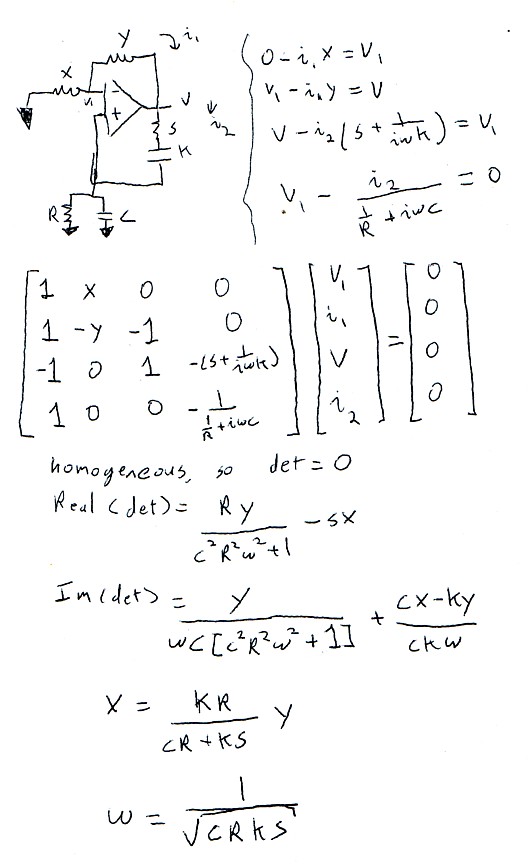 Y
i₁
X
V₁
-
+
V
i₂
S
K
R
C
0 - i₁ X = V₁
V₁ - i₁ Y = V
V - i₂ (S + 1/(iωK)) = V₁
V₁ - i₂/(1/R + iωC) = 0
[1 X 0 0] [V₁] [0]
[1 -Y -1 0] [i₁] = [0]
[-1 0 1 -(S + 1/(iωK))] [V] [0]
[1 0 0 -1/(1/R + iωC)] [i₂] [0]
homogeneous, so det = 0
Real (det) = RY/(C²R²ω² + 1) - SX
Im(det) = Y/(ωC[C²R²ω² + 1]) + (CX - KY)/(CKω)
X = KR/(CR + KS) Y
ω = 1/√(CRKS)